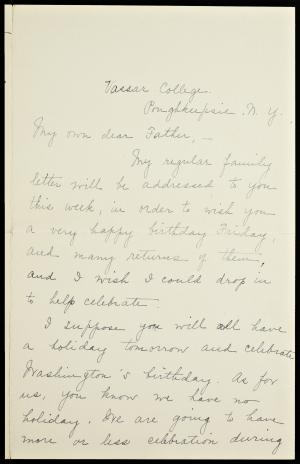 Vassar College.
Poughkeepsie. N. Y.
My own dear Father, —
My regular family
letter will be addressed to you
this week, in order to wish you
a very happy birthday Friday,
and many returns of them,
and I wish I could drop in
to help celebrate.
I suppose you will all have
a holiday tomorrow and celebrate
Washington's birthday. As for
us, you know we have no
holiday. We are going to have
more or less celebration during